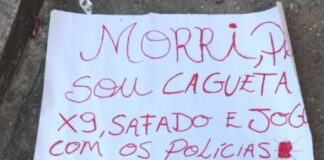 MORRI, PK
SOU CAGUETA
X9, SAFADO E JOGO
COM OS POLÍCIAS